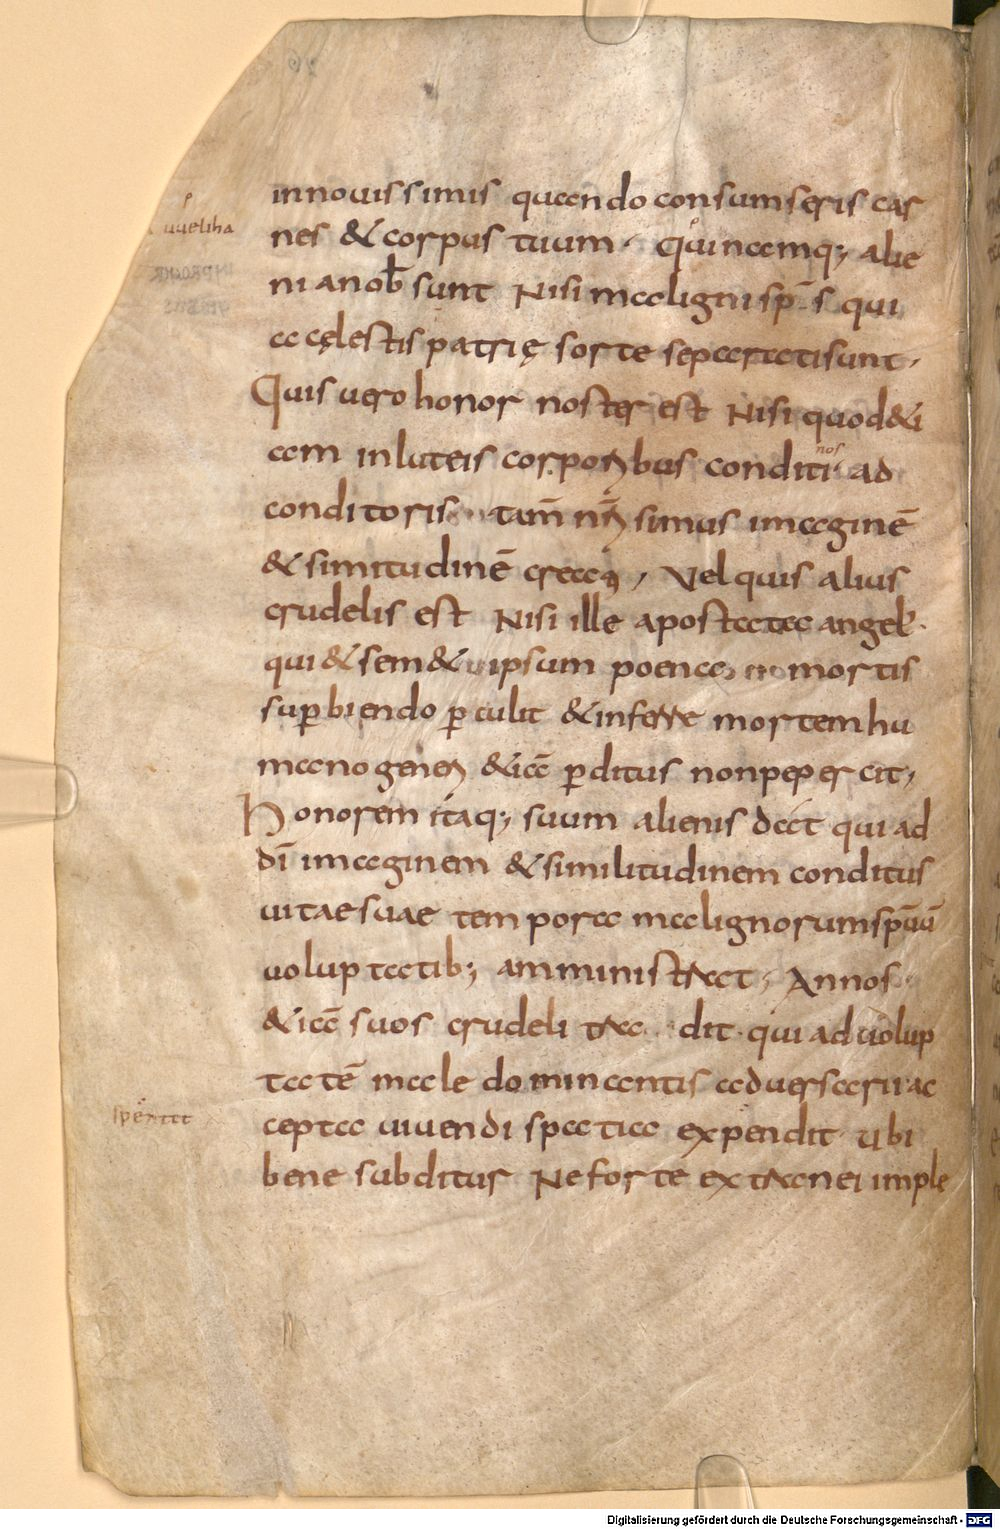 uueliha
innouissimis quando consumseris car
nes & corpus tuum. Qui namq; alie
ni anob̅ sunt Nisi maligni sp̅s qui
a cęlestis patrię sorte separati sunt.
Quis uero honor noster est Nisi quod &i
am inluteis corporibus conditi nos ad
conditoris tam̅ nr̅i simus imagine̅
& simitudine̅ creati, Vel quis alius
crudelis est Nisi ille apostata angel
qui & sem & ipsum poena mortis
sup̱biendo p̱culit & inferre mortem hu
mano generi &ia̅ p̱ditus non pepercit,
Honorem itaq; suum alienis dat qui ad
di̅ imaginem & similitudinem conditus
uitae suae tempora malignorum sp̅uu̅
uoluptatib; amministrat, Annos
&ia̅ suos crudeli tra dit. qui ad uolup
tate̅ male dominantis aduersarii ac
cepta uiuendi spatia expendit. Ubi
bene subditur Ne forte extranei imple
Digitalisierung gefördert durch die Deutsche Forschungsgemeinschaft - DFG